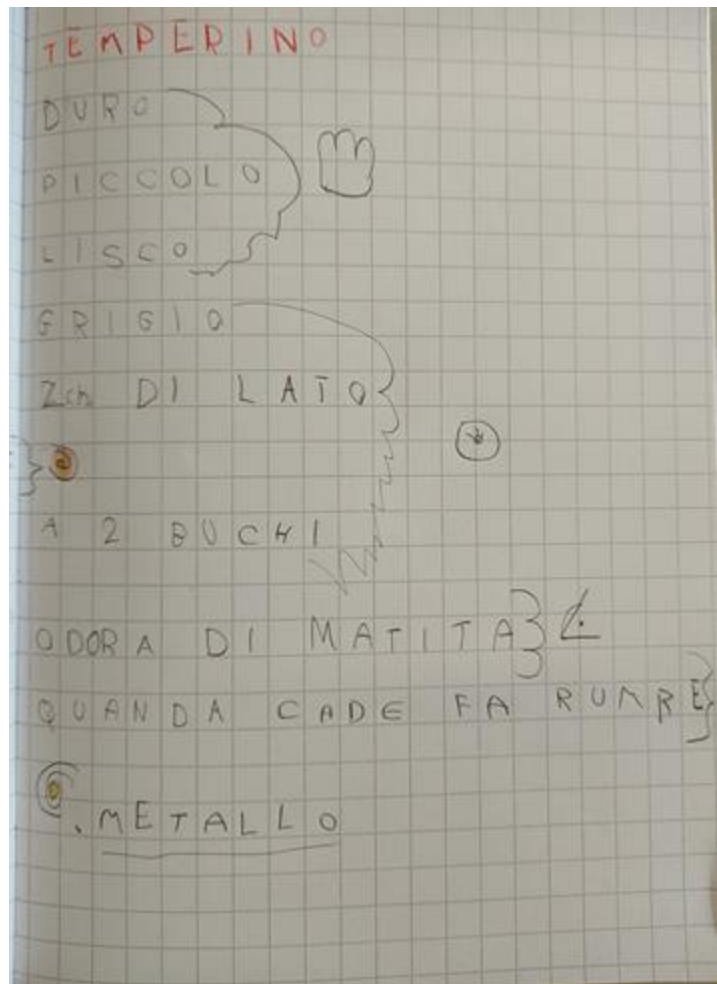 TEMPERINO
DURO
PICCOLO
LISCO
GRIGIO
2cm DI LATO
A 2 BUCHI
ODORA DI MATITA
QUANDA CADE FA RUMRE
METALLO